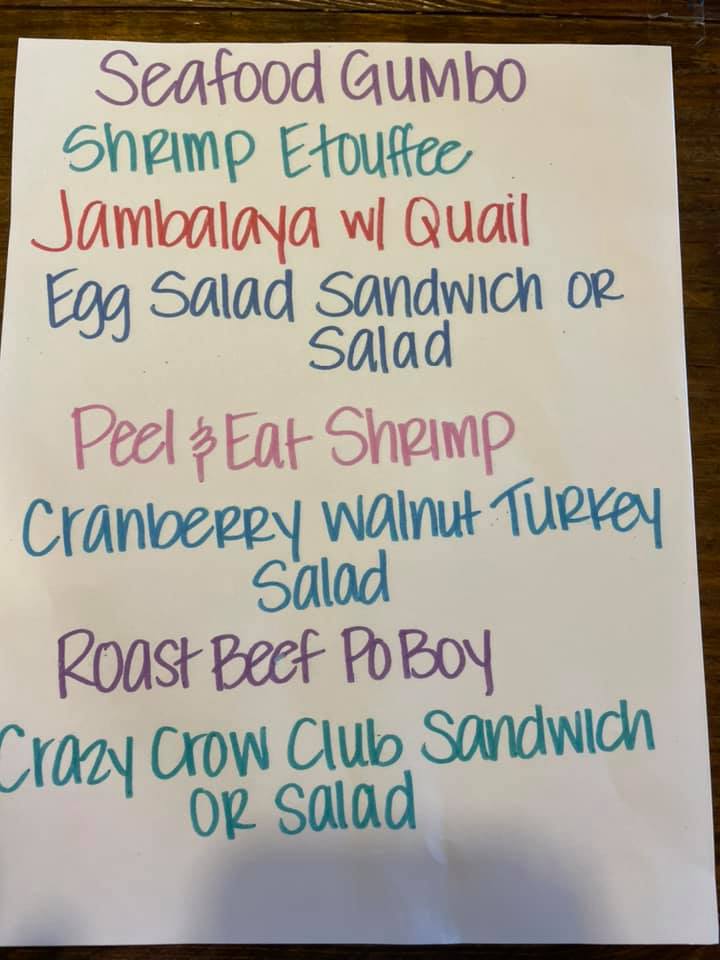 Seafood Gumbo
Shrimp Etouffee
Jambalaya w/ Quail
Egg Salad Sandwich or
Salad
Peel & Eat Shrimp
Cranberry Walnut Turkey
Salad
Roast Beef Po Boy
Crazy Crow Club Sandwich
or Salad